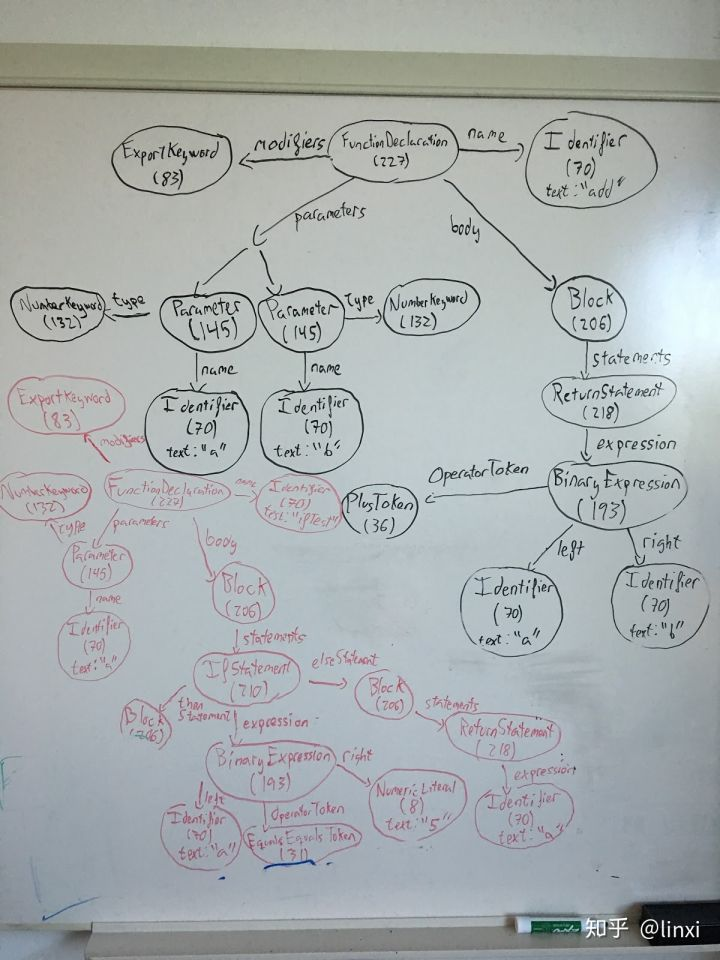 ExportKeyword
(83)
modifiers
FunctionDeclaration
(227)
name
Identifier
(70)
text:"add"
parameters
body
NumberKeyword
(132)
type
Parameter
(145)
Parameter
(145)
type
NumberKeyword
(132)
Block
(206)
name
name
statements
Identifier
(70)
text:"a"
Identifier
(70)
text:"b"
ReturnStatement
(218)
expression
OperatorToken
BinaryExpression
(193)
PlusToken
(36)
left
right
Identifier
(70)
text:"a"
Identifier
(70)
text:"b"
ExportKeyword
(83)
modifiers
NumberKeyword
(132)
type
FunctionDeclaration
(227)
name
Identifier
(70)
text:"ifTest"
parameters
body
Parameter
(145)
name
Identifier
(70)
text:"a"
Block
(206)
statements
IfStatement
(210)
elseStatement
Block
(206)
statements
ReturnStatement
(218)
expression
Identifier
(70)
text:"a"
then
Statement
Block
(206)
expression
BinaryExpression
(193)
left
OperatorToken
right
Identifier
(70)
text:"a"
EqualsEqualsToken
(31)
NumericLiteral
(8)
text:"5"
知乎 @linxi